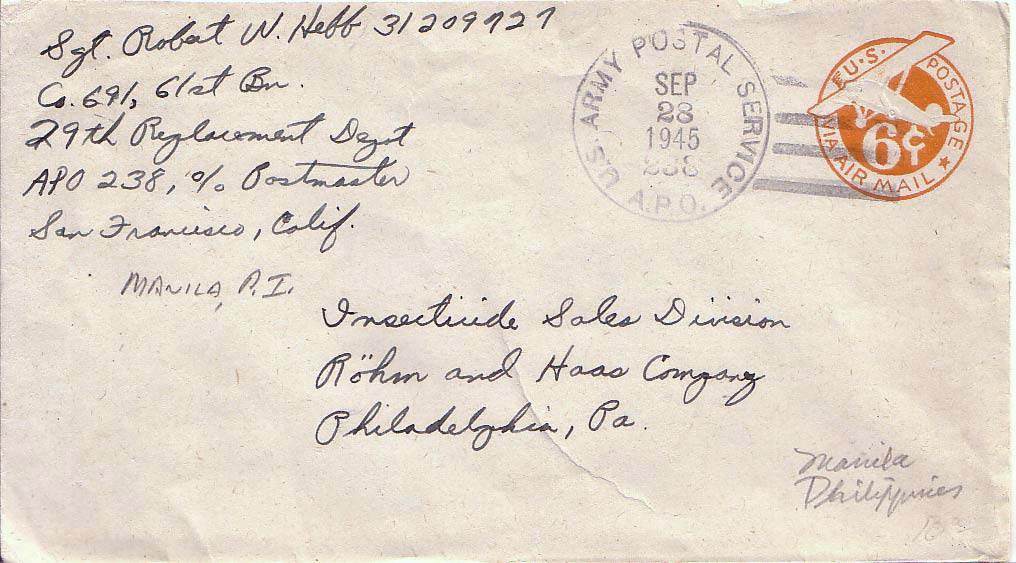 Sgt. Robert W. Hebb 31209727
Co. 691, 61st Bn.
29th Replacement Depot
APO 238, c/o Postmaster
San Francisco, Calif.
MANILA, P.I.
U.S. ARMY POSTAL SERVICE
SEP
28
1945
238
A.P.O.
U.S. POSTAGE
6¢
VIA AIR MAIL
Insecticide Sales Division
Röhm and Haas Company
Philadelphia, Pa.
Manila
Philippines